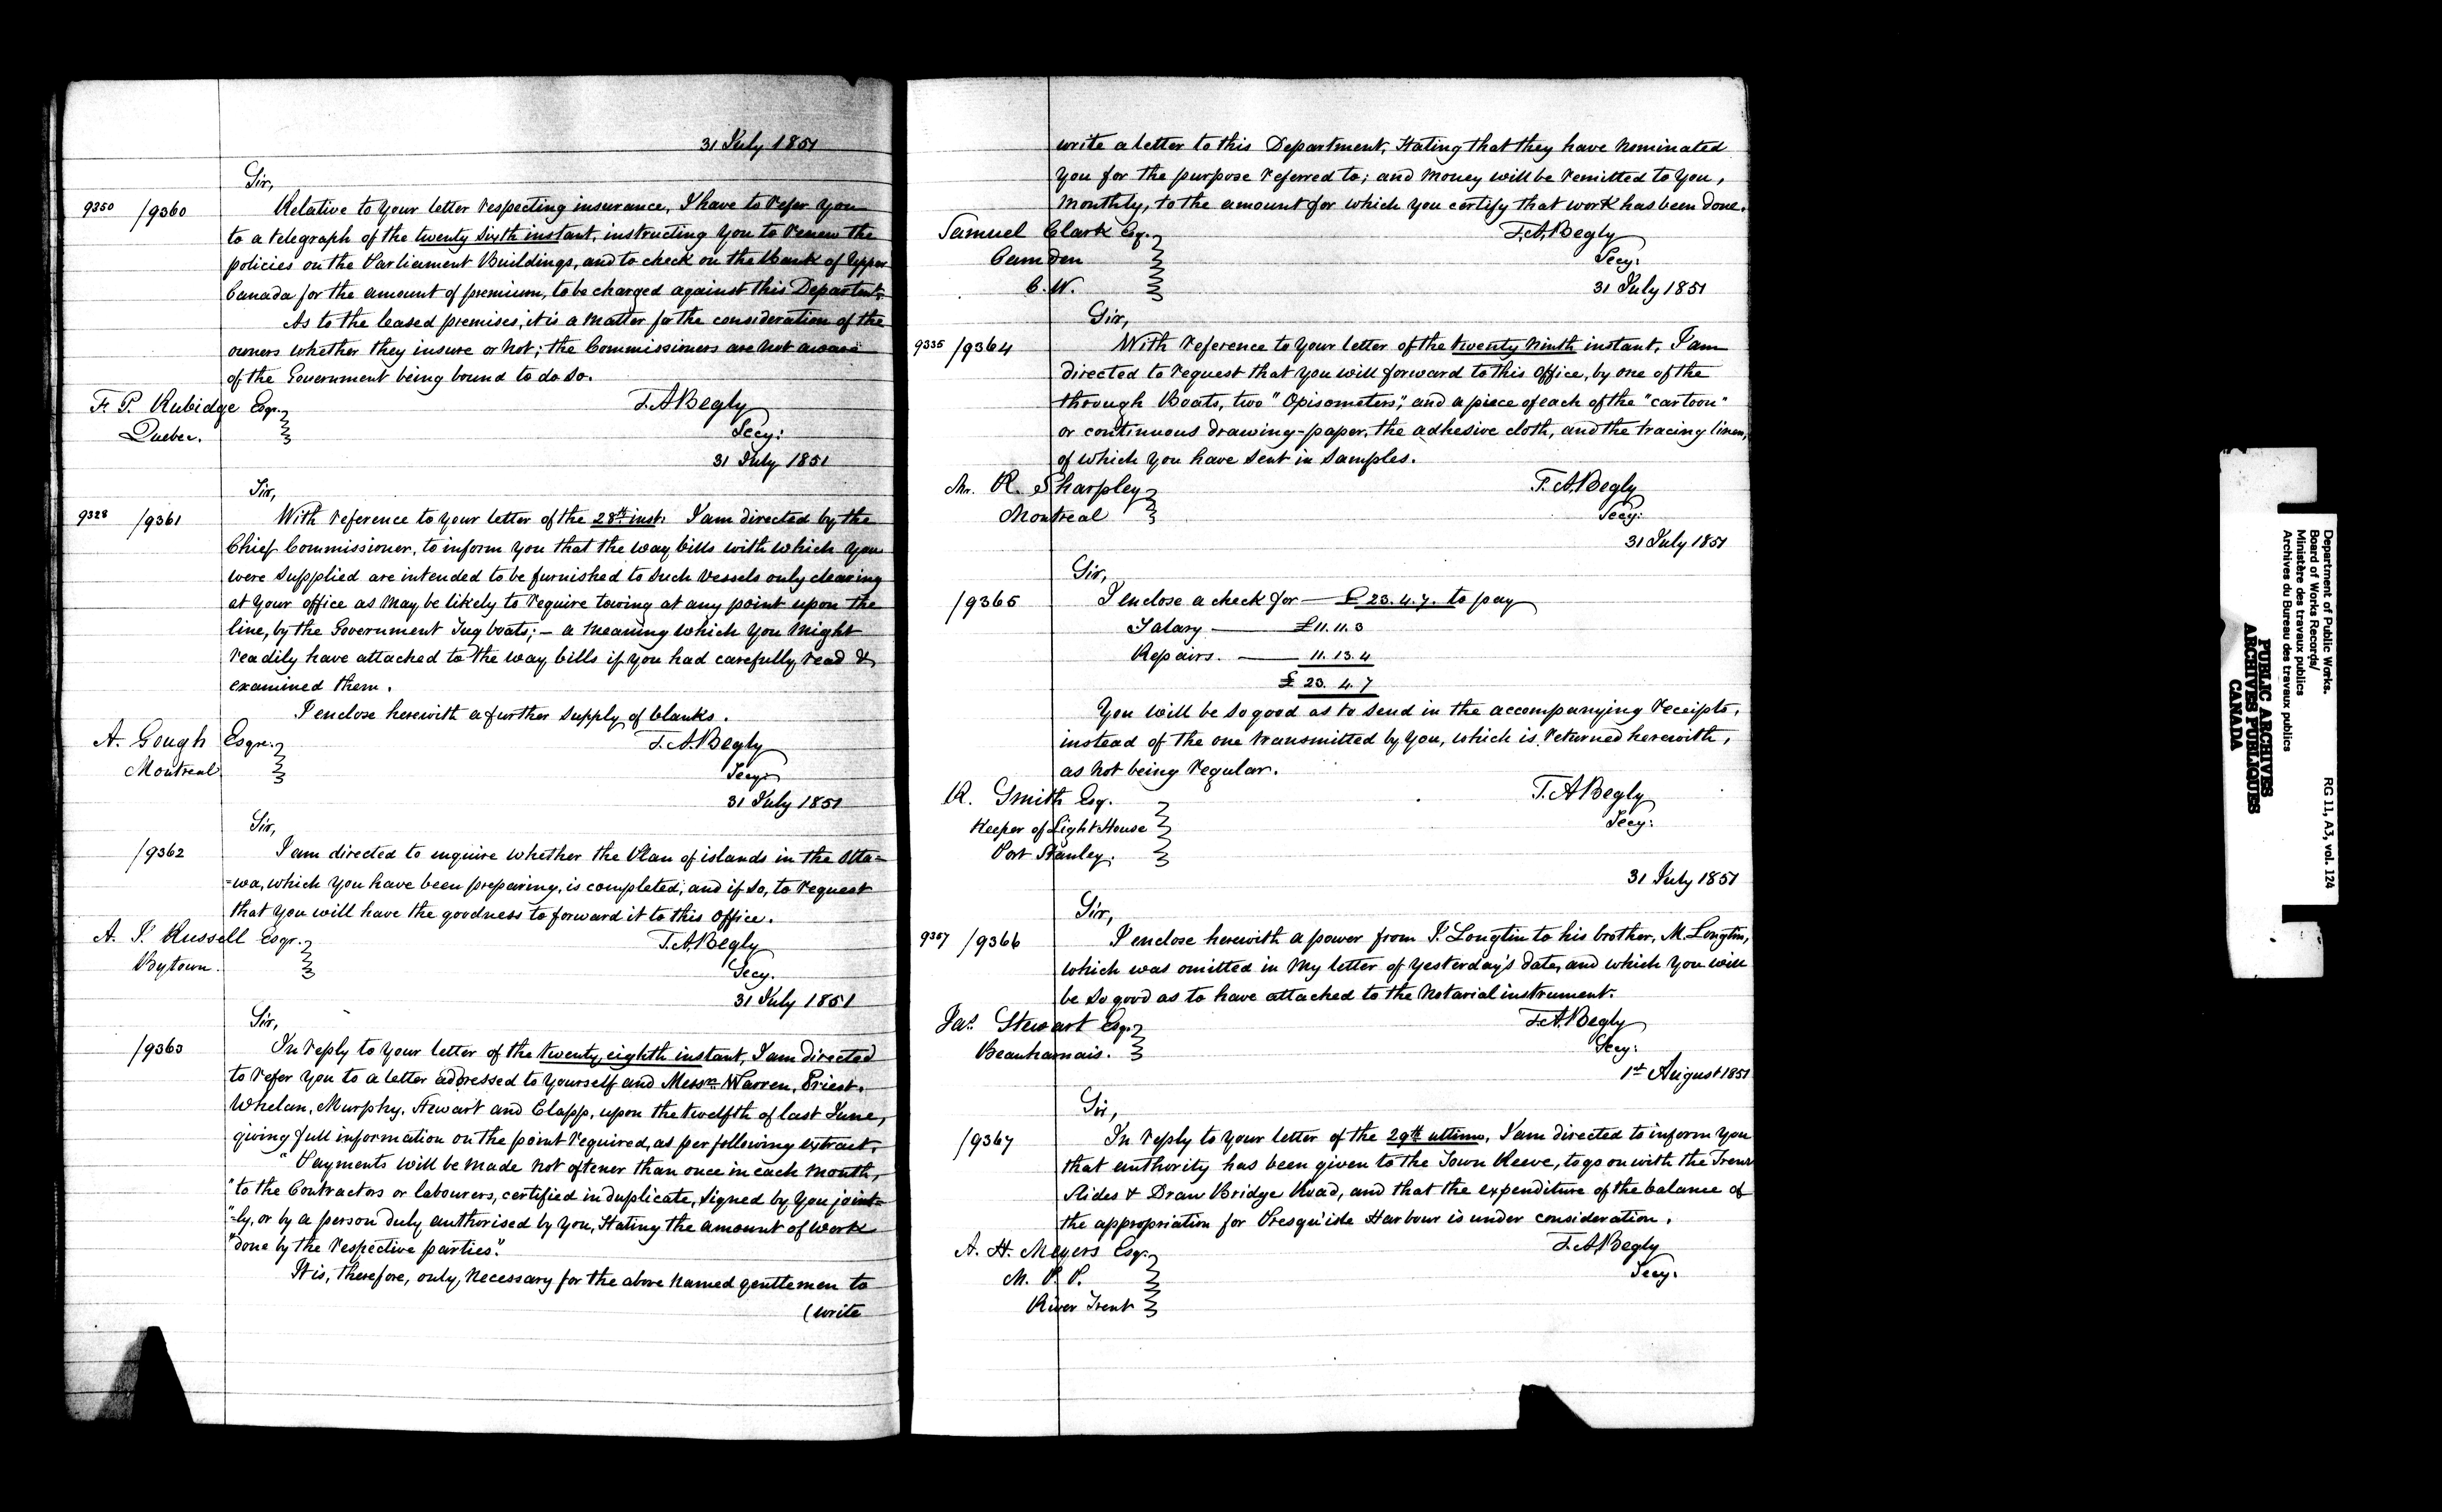 31 July 1851
Sir,
9350 /9360 Relative to your letter respecting insurance, I have to refer you
to a telegraph of the twenty sixth instant, instructing you to renew the
policies on the Parliament Buildings, and to check on the Bank of Upper
Canada for the amount of premium, to be charged against this Departmt.
As to the leased premises, it is a matter for the consideration of the
owners whether they insure or not; the Commissioners are not aware
of the Government being bound to do so.
F. P. Rubidge Esqr. T.A. Begly
Quebec. Secy:
31 July 1851
Sir,
9328 /9361 With reference to your letter of the 28th inst. I am directed by the
Chief Commissioner, to inform you that the way bills with which you
were supplied are intended to be furnished to such vessels only clearing
at your office as may be likely to require towing at any point upon the
line, by the Government Tug boats; – a meaning which you might
readily have attached to the way bills if you had carefully read &
examined them.
I enclose herewith a further supply of blanks.
A. Gough Esqre. T.A. Begly
Montreal Secy:
31 July 1851
Sir,
/9362 I am directed to enquire whether the Plan of islands in the Otta=
=wa, which you have been preparing, is completed, and if so, to request
that you will have the goodness to forward it to this office.
A. J. Russell Esqr. T.A. Begly
Bytown. Secy.
31 July 1851
Sir,
/9363 In reply to your letter of the twenty eighth instant, I am directed
to refer you to a letter addressed to yourself and Messrs Warren, Priest,
Whelan, Murphy, Stewart and Clapp, upon the twelfth of last June,
giving full information on the point required, as per following extract.
"Payments will be made not oftener than once in each month,
"to the Contractors or labourers, certified in duplicate, signed by you joint=
"=ly, or by a person duly authorised by you, stating the amount of work
"done by the respective parties".
It is, therefore, only necessary for the above named gentlemen to
(write
write a letter to this Department, stating that they have nominated
you for the purpose referred to; and money will be remitted to you,
monthly, to the amount for which you certify that work has been done.
Samuel Clark Esq. T.A. Begly
Camden Secy:
C.W. 31 July 1851
Sir,
9335 /9364 With reference to your letter of the twenty ninth instant, I am
directed to request that you will forward to this office, by one of the
through Boats, two "Opisometers", and a piece of each of the "cartoon"
or continuous drawing-paper, the adhesive cloth, and the tracing linen,
of which you have sent in samples.
Mr. R. Sharpley T.A. Begly
Montreal Secy:
31 July 1851
Sir,
/9365 I enclose a check for — £23.4.7. to pay
Salary — £11.11.3
Repairs. — 11.13.4
£ 23. 4. 7
You will be so good as to send in the accompanying receipts,
instead of the one transmitted by you, which is returned herewith,
as not being regular.
R. Smith Esq. T.A. Begly
Keeper of Light House Secy:
Port Stanley.
31 July 1851
Sir,
9357 /9366 I enclose herewith a power from J. Longtin to his brother, M. Longtin,
which was omitted in my letter of yesterday's date, and which you will
be so good as to have attached to the notarial instrument.
Jas. Stewart Esq. T.A. Begly
Beauharnais. Secy:
1st August 1851
Sir,
/9367 In reply to your letter of the 29th ultimo, I am directed to inform you
that authority has been given to the Town Reeve, to go on with the Trent
Slides & Draw Bridge Road, and that the expenditure of the balance of
the appropriation for Presqu'isle Harbour is under consideration.
A. H. Meyers Esq. T.A. Begly
M. P. P. Secy.
River Trent
Department of Public Works.
Board of Works Records/
Ministère des travaux publics
Archives du Bureau des travaux publics
RG 11, A3, vol. 124
PUBLIC ARCHIVES
ARCHIVES PUBLIQUES
CANADA